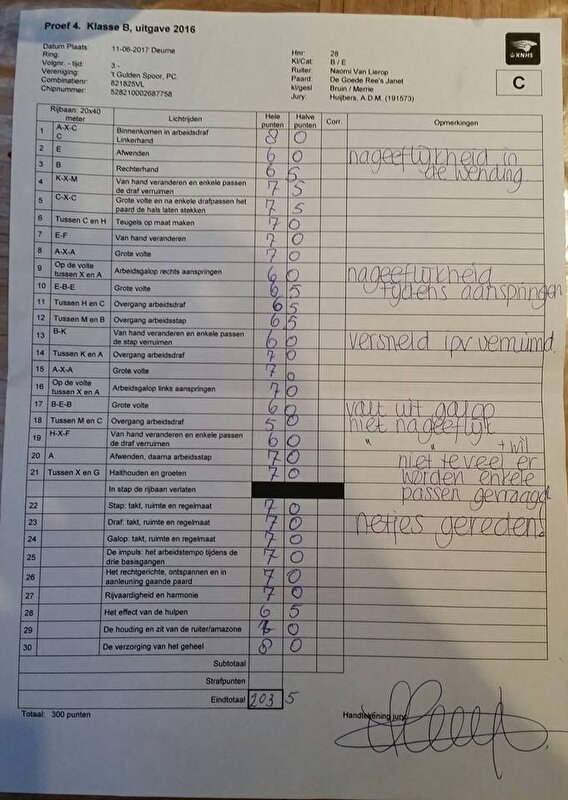 Proef 4. Klasse B, uitgave 2016
KNHS
C
Datum Plaats: 11-06-2017 Deurne
Ring:
Volgnr. - tijd: 3 -
Vereniging: 't Gulden Spoor, PC.
Combinatienr: 821825VL
Chipnummer: 528210002687758
Hnr: 28
Kl/Cat: B / E
Ruiter: Naomi Van Lierop
Paard: De Goede Ree's Janet
kl/gesl Bruin / Merrie
Jury: Huijbers, A.D.M. (191573)
Rijbaan: 20x40 meter Lichtrijden Hele punten Halve punten Corr. Opmerkingen
1 A-X-C Binnenkomen in arbeidsdraf 8 0
C Linkerhand
2 E Afwenden 6 0 nageeflijkheid in
3 B Rechterhand 6 5 de wending
4 K-X-M Van hand veranderen en enkele passen de draf verruimen 7 5
5 C-X-C Grote volte en na enkele drafpassen het paard de hals laten stekken 7 5
6 Tussen C en H Teugels op maat maken 7 0
7 E-F Van hand veranderen 7 0
8 A-X-A Grote volte 7 0
9 Op de volte tussen X en A Arbeidsgalop rechts aanspringen 6 0 nageeflijkheid
10 E-B-E Grote volte 6 5 tijdens aanspringen
11 Tussen H en C Overgang arbeidsdraf 6 5
12 Tussen M en B Overgang arbeidsstap 6 5
13 B-K Van hand veranderen en enkele passen de stap verruimen 6 0 versneld ipv verruimd
14 Tussen K en A Overgang arbeidsdraf 7 0
15 A-X-A Grote volte 7 0
16 Op de volte tussen X en A Arbeidsgalop links aanspringen 7 0
17 B-E-B Grote volte 6 0 valt uit galop
18 Tussen M en C Overgang arbeidsdraf 5 0 niet nageeflijk
19 H-X-F Van hand veranderen en enkele passen de draf verruimen 6 0 " " + wil
20 A Afwenden, daarna arbeidsstap 7 0 niet te veel er
21 Tussen X en G Halthouden en groeten 7 0 worden enkele
In stap de rijbaan verlaten passen gevraagd
22 Stap: takt, ruimte en regelmaat 7 0
23 Draf: takt, ruimte en regelmaat 7 0 netjes gereden!
24 Galop: takt, ruimte en regelmaat 7 0
25 De impuls: het arbeidstempo tijdens de drie basisgangen 7 0
26 Het rechtgerichte, ontspannen en in aanleuning gaande paard 7 0
27 Rijvaardigheid en harmonie 7 0
28 Het effect van de hulpen 6 5
29 De houding en zit van de ruiter/amazone 7 0
30 De verzorging van het geheel 8 0
Subtotaal
Strafpunten
Eindtotaal 203 5
Totaal: 300 punten
Handtekening jury: